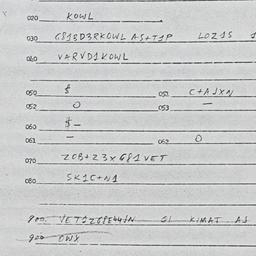 020 KOWL
030 G813D3RKOWL AS+T1P LOZ1S 1
040 VARVD1KOWL
050 $ 051 C+AJXN
052 O 053 —
060 $—
061 — 062 O
070 2OB+23×G81VET
080 SK1C+N1
900 SI KIMAT AS
900 OWX